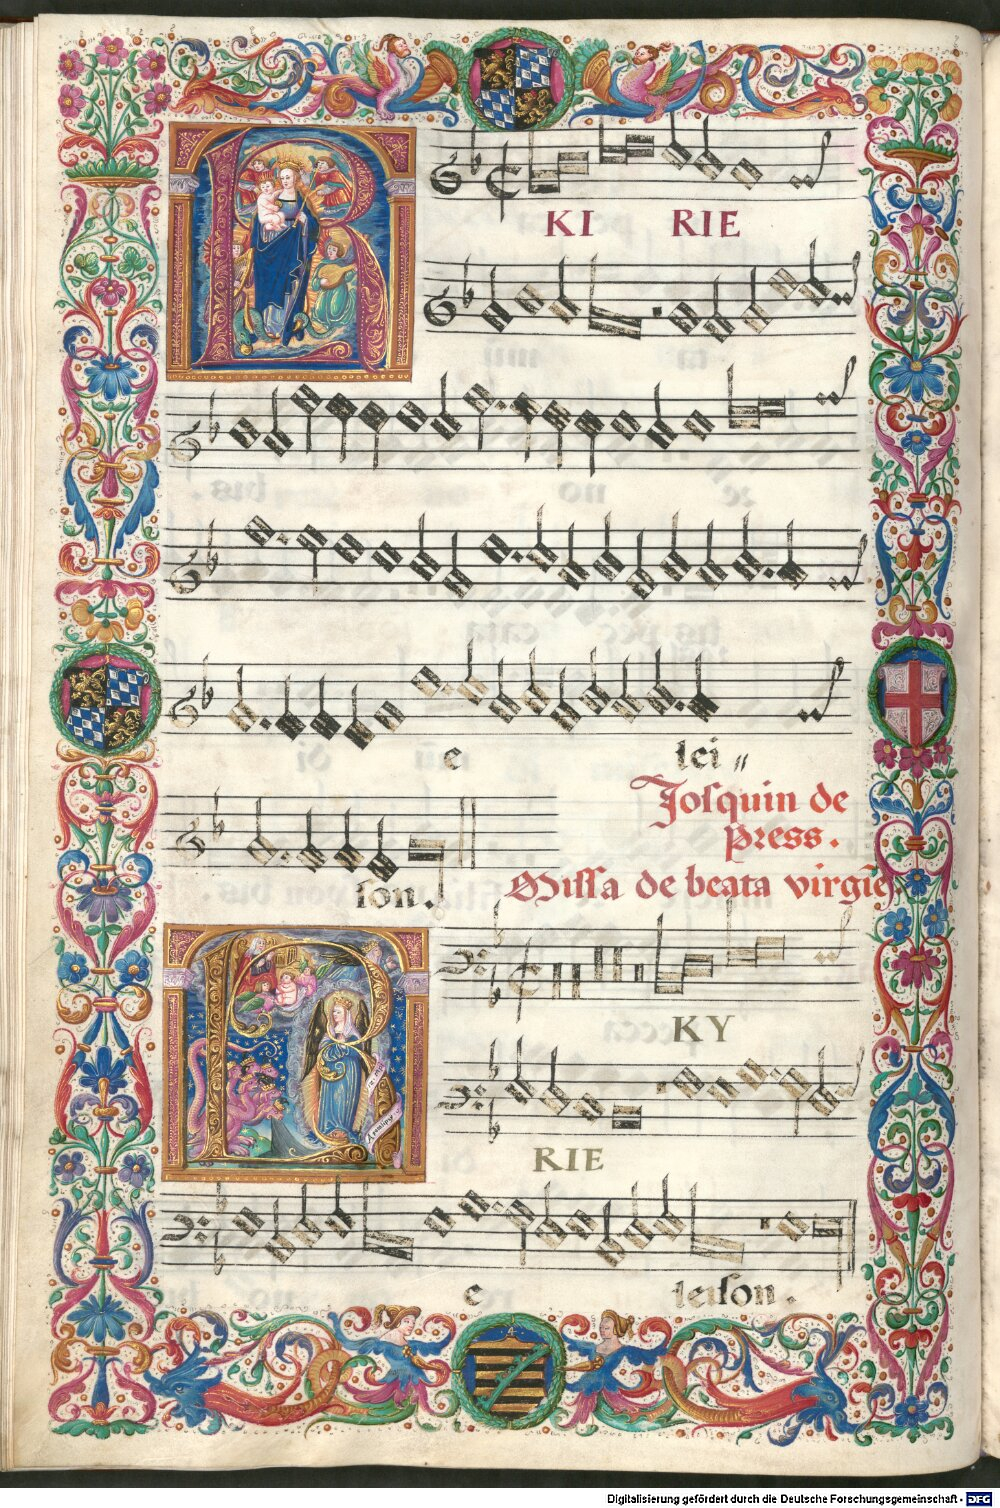 KI RIE
e lei
son.
Josquin de
Press.
Missa de beata virgīe.
KY
RIE
e leison.
Digitalisierung gefördert durch die Deutsche Forschungsgemeinschaft - DFG